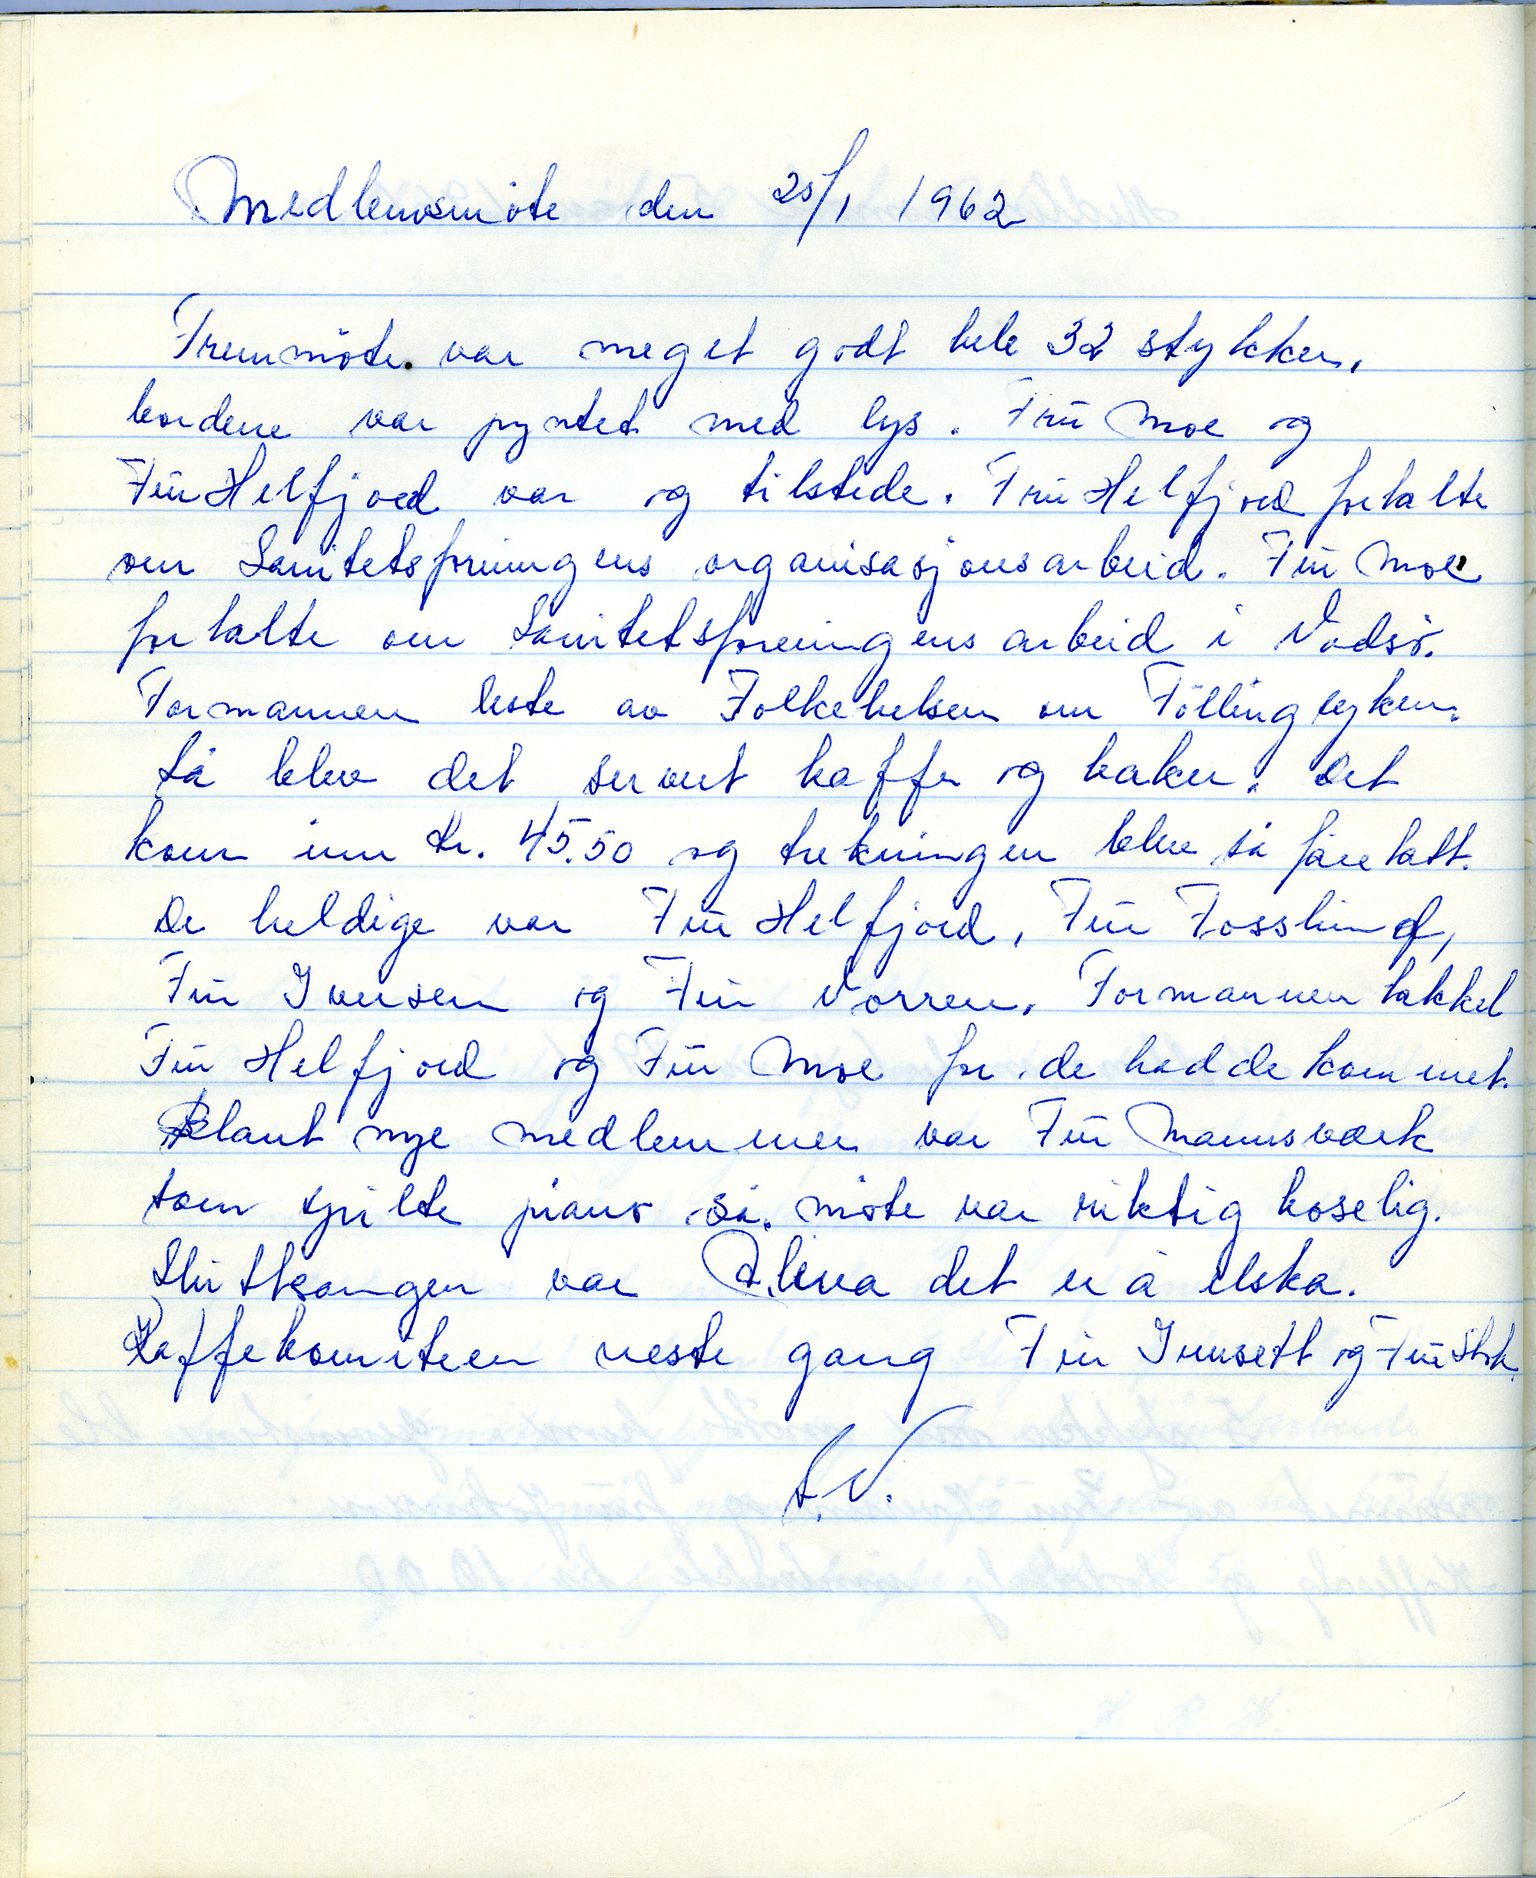 Medlemsmöte den 25/1 1962
Fremmöte. var meget godt hele 32 stykker,
bordene var pyntet med lys. Frü Moe og
Frü Helfjord var og tilstede. Frü Helfjord fortalte
om Sanitetsforningens organisasjonsarbeid. Frü Moe
fortalte om Sanitetsforeningens arbeid i Vadsö.
Formannen leste av Folkehelsen om Föllingsyken.
Så blev det servert kaffe og kaker. Det
kom inn kr. 45.50 og trekningen blev så foretatt.
De heldige var Frü Helfjord, Frü Fosslund,
Frü Iversen og Frü Vorren. Formannen takket
Frü Helfjord og Frü Moe for de hadde kommet.
Blant nye medlemmer var Frü Mannsværk
som spilte piano så. möte var riktig koselig.
Slüttsangen var Alena det er å elska.
Kaffekomiteen neste gang Frü Irmsett og Frü
S.V.